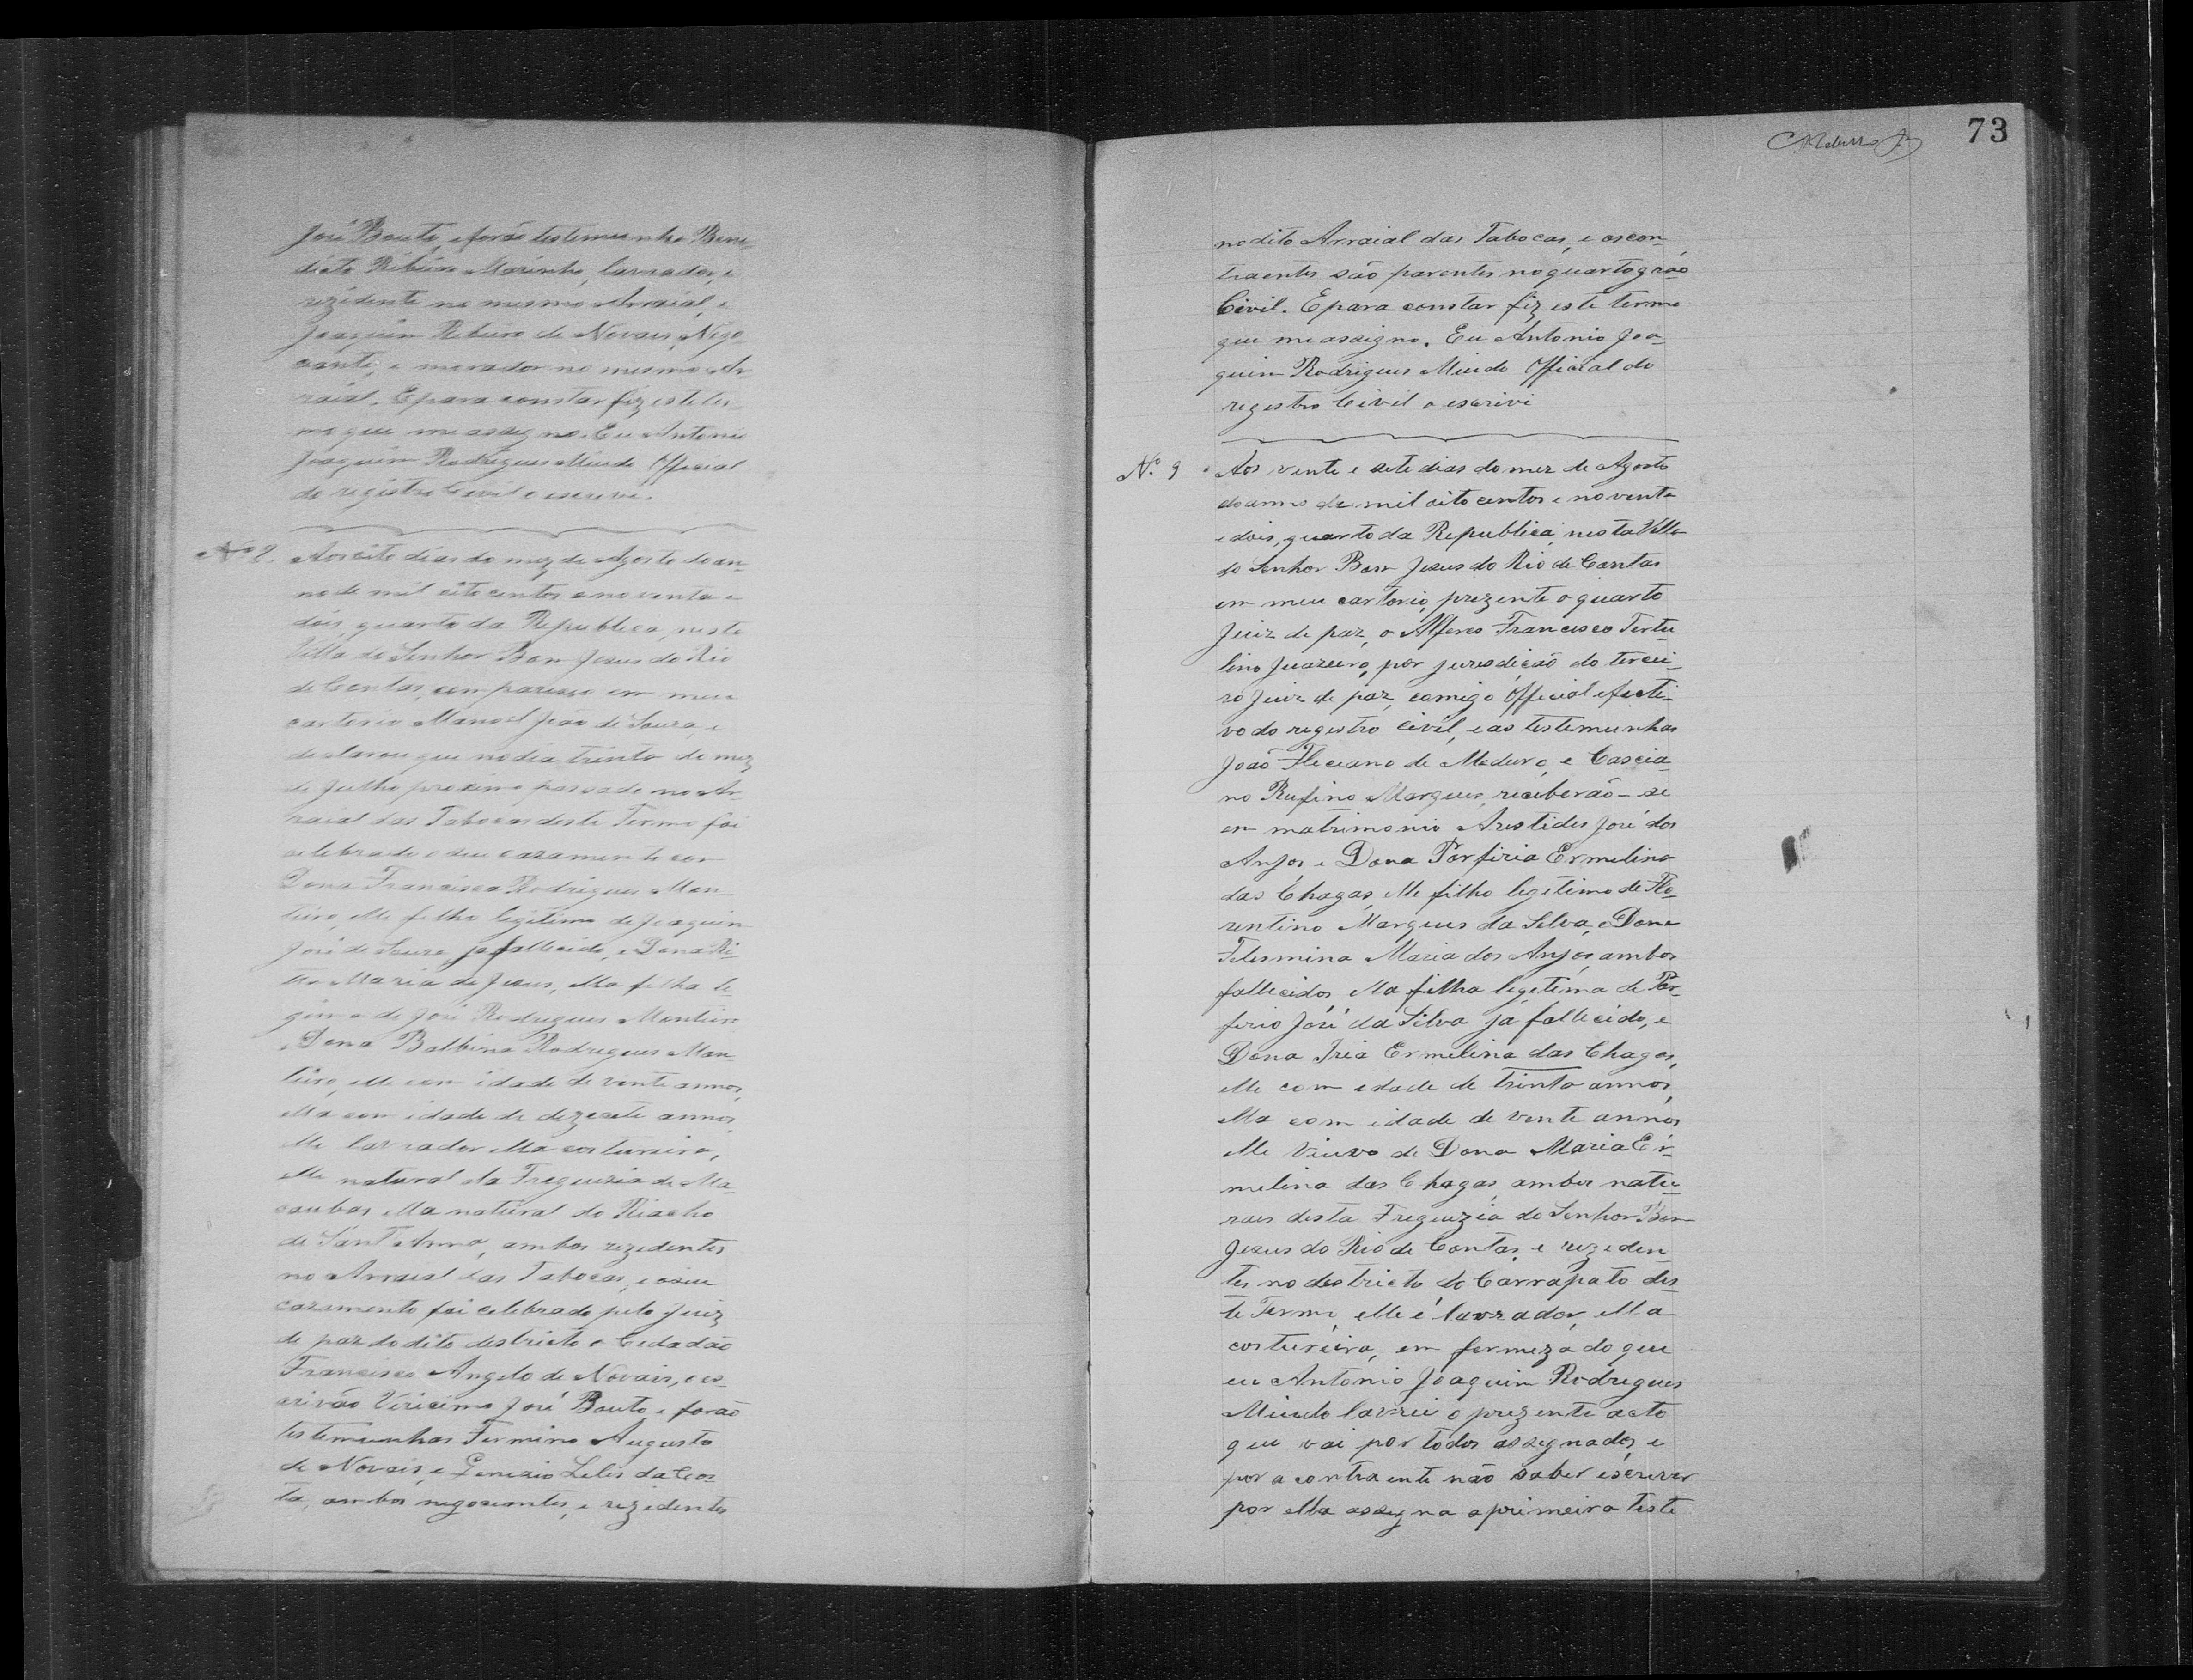 José Bouto, e forão testemunha Bene
dicto Ribeiro Marinho, lavrador, e
rezidente no mesmo Arraial, e
Joaquim Ribeiro de Novais, Nego
ciante, e morador no mesmo Ar
raial. E para constar fiz este ter
mo que me assigno. Eu Antonio
Joaquim Rodrigues Miudo Official
do registro Civil o escrevi.
Nº 8. Aos oito dias do mez de Agosto do an
no de mil oito centos e noventa e
dois, quarto da Republica, nesta
Villa do Senhor Bom Jesus do Rio
de Contas, compareceo em meu
cartorio Manoel João de Souza, e
declarou que no dia trinta do mez
de Julho proximo passado no Ar
raial das Tabocas deste Termo foi
celebrado o seu cazamento com
Dona Francisca Rodrigues Mon
teiro, elle filho legitimo de Joaquim
José de Souza, ja fallecido, e Dona Ri
ta Maria de Jesus, ella filha le
gitima de José Rodrigues Monteiro
e Dona Balbina Rodrigues Mon
teiro, elle com idade de vinte annos,
ella com idade de dezesete annos,
elle lavrador ella costureira,
elle natural da Freguizia de Ma
caubas ella natural do Riacho
de Sant Anna, ambos rezidentes
no Arraial das Tabocas, e o seu
cazamento foi celebrado pelo Juiz
de paz do dito destricto o Cidadão
Francisco Angelo de Novais, o es
crivão Viricimo José Bouto, e forão
testemunhas Firmino Augusto
de Novais, e Genezio Lelis da Cos
ta, ambos negociantes, e rezidentes
73
no dito Arraial das Tabocas, e os con
traentes são parentes no quarto gráo
Civil. E para constar fiz este termo
que me assigno. Eu Antonio Joa
quim Rodrigues Miudo Official do
registro Civil o escrivi
Nº 9 Aos vente e sete dias do mez de Agosto
do anno de mil oito centos e noventa
e dois, quarto da Republica, nesta Villa
do Senhor Bom Jesus do Rio de Contas
em meu cartorio, prezente o quarto
Juiz de paz, o Alferes Francisco Tertu
lino Juazeiro, por jurisdição do tercei
ro Juiz de paz, comigo Official efecti
vo do registro civil, e as testemunhas
João Feleciano de Madura, e Cascia
no Rufino Marques, receberão-se
em matrimonio Aristides José dos
Anjos e Dona Porfiria Ermelina
das Chagas, elle filho legetimo de Flo
rentino Marques da Silva, e Dona
Felismina Maria dos Anjos, ambos
fallecidos, ella filha legetima de Por
ferio José da Silva ja fallecido, e
Dona Iria Ermelina das Chagas,
elle com idade de trinta annos,
ella com idade de vente annos
elle Viuvo de Dona Maria Er
melina das Chagas, ambos natu
raes desta Freguizia do Senhor Bom
Jesus do Rio de Contas, e rezeden
tes no destricto do Carrapato des
te Termo, elle é lavrador, ella
costureira, em fermeza do que
eu Antonio Joaquim Rodrigues
Miudo lavrei o prezente acto
que vai por todos assignados, e
por a contraente não saber escrever
por ella assigna a primeira teste